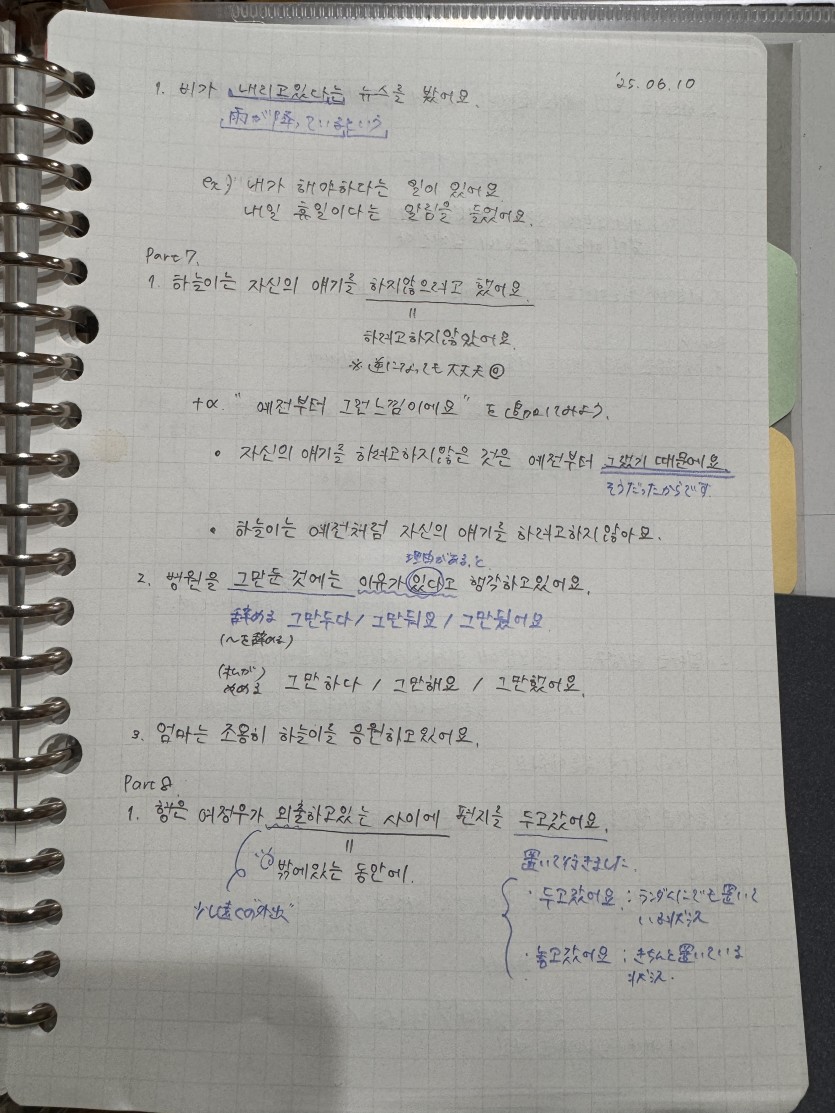 '25.06.10
1. 비가 내리고있다는 뉴스를 봤어요.
雨が降っているという
ex) 내가 해야하다는 일이 있어요.
내일 휴일이다는 알림을 들었어요.
Part 7.
1. 하늘이는 자신의 얘기를 하지않으려고 했어요.
=
하려고하지않았어요.
※ 逆になっても大丈夫◎
+α. "예전부터 그런느낌이에요" を追加してみよう.
• 자신의 얘기를 하려고하지않은 것은 예전부터 그랬기 때문에요.
そうだったからです
• 하늘이는 예전처럼 자신의 얘기를 하려고하지않아요.
理由がある、と
2. 병원을 그만둔 것에는 이유가 있다고 생각하고있어요.
辞める 그만두다 / 그만둬요 / 그만뒀어요
(〜を辞める)
(私が)
やめる 그만하다 / 그만해요 / 그만했어요.
3. 엄마는 조용히 하늘이를 응원하고있어요.
Part 8
1. 형은 여정우가 외출하고있는 사이에 편지를 두고갔어요.
=
밖에있는 동안에.
少し遠くの"外出"
置いて行きました.
· 두고갔어요 : にでも置いて
いる状況
· 놓고갔어요 : きちんと置いている
状況.